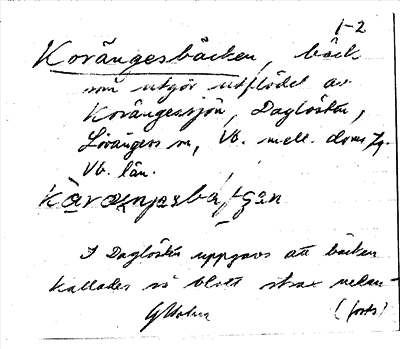 1-2
Korängesbäcken, bäck
som utgör utflödet av
Korängessjön, Daglösten,
Lövångers sn, Vb. mell. doms. Jg.
Vb. län.
I Daglösten uppgavs att bäcken
kallades så blott strax nedan-
(forts)